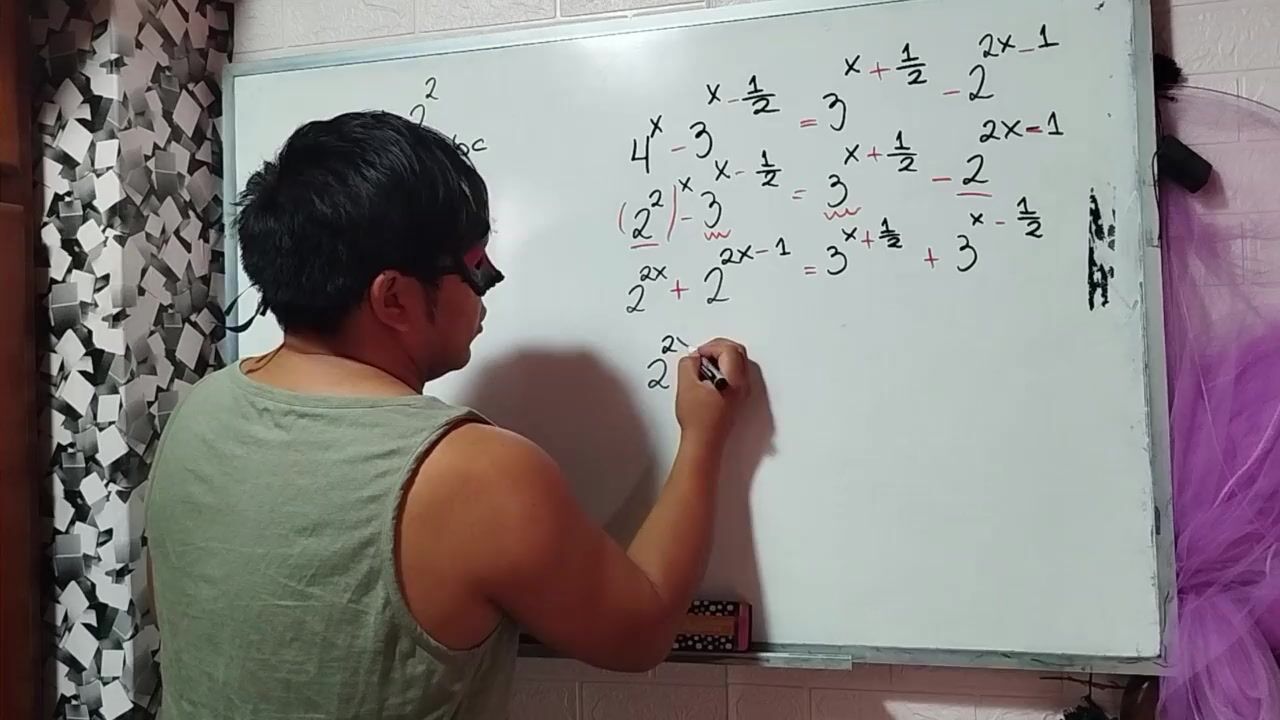 2
2
bc
4^x - 3^(x - 1/2) = 3^(x + 1/2) - 2^(2x - 1)
(2^2)^x - 3^(x - 1/2) = 3^(x + 1/2) - 2^(2x - 1)
2^(2x) + 2^(2x - 1) = 3^(x + 1/2) + 3^(x - 1/2)
2^2